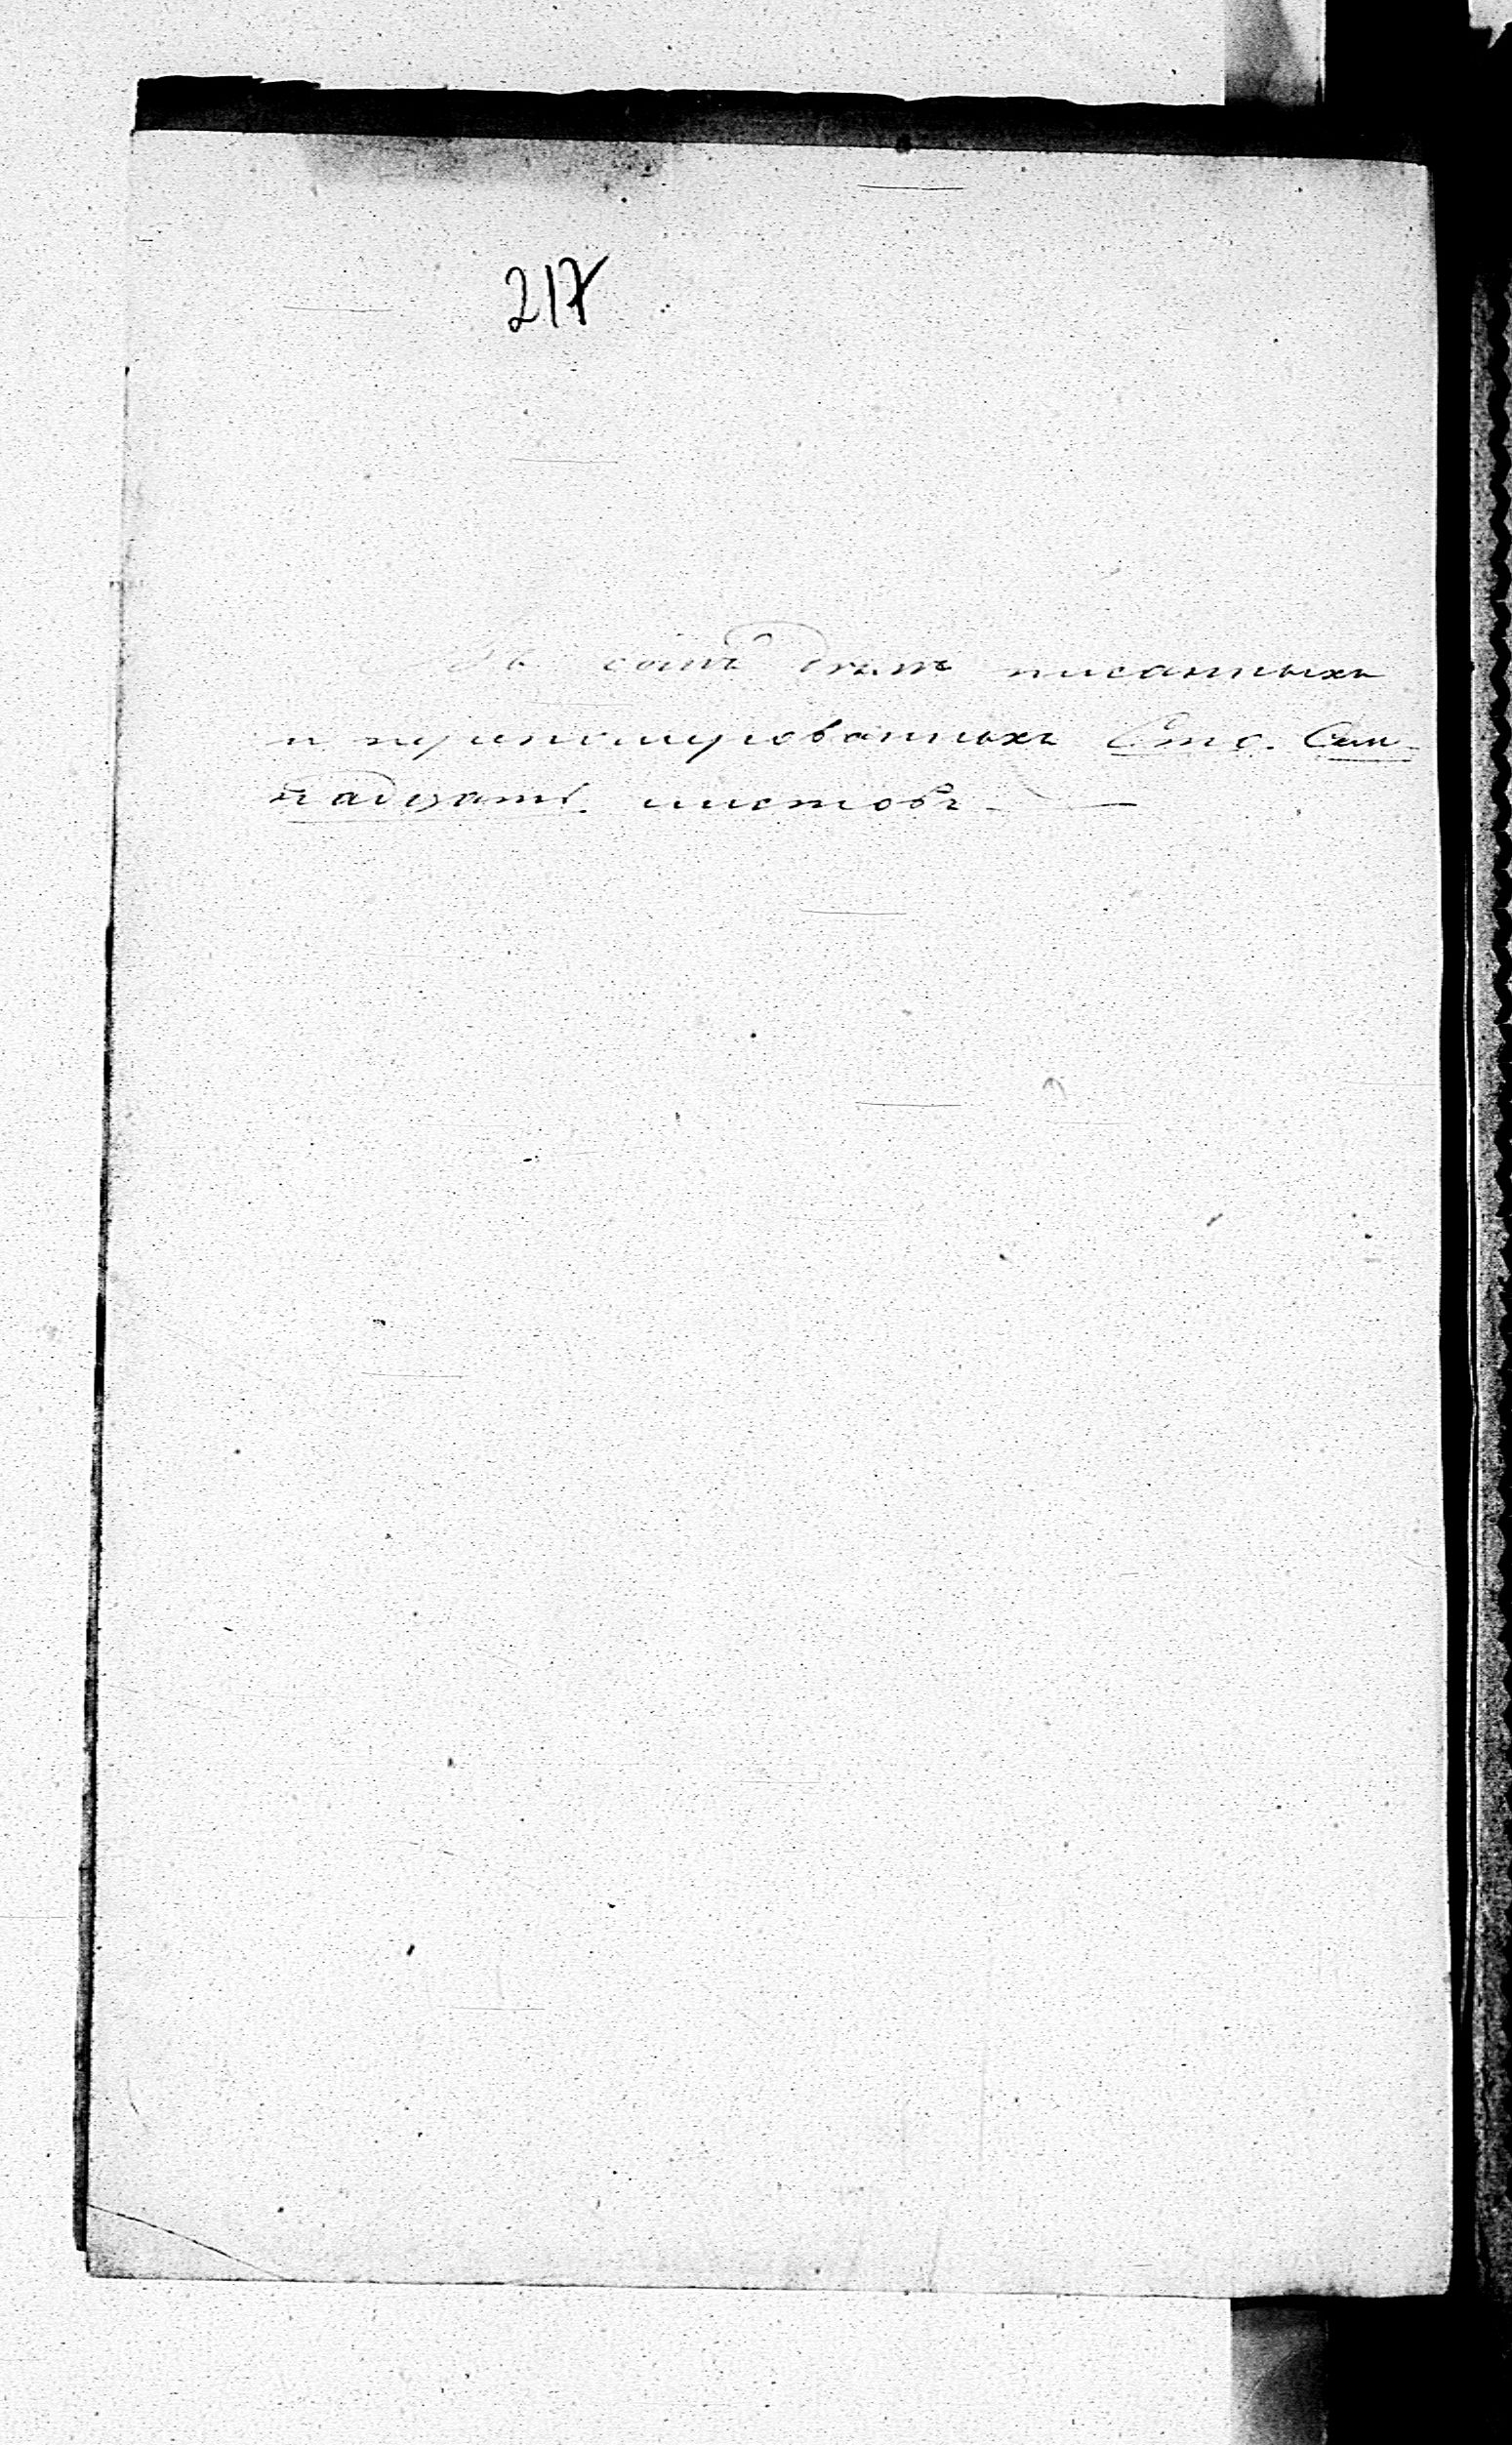 217
Въ семъ дѣлѣ писанныхъ
и нумерованныхъ Сто. Сем-
надцать листовъ. —